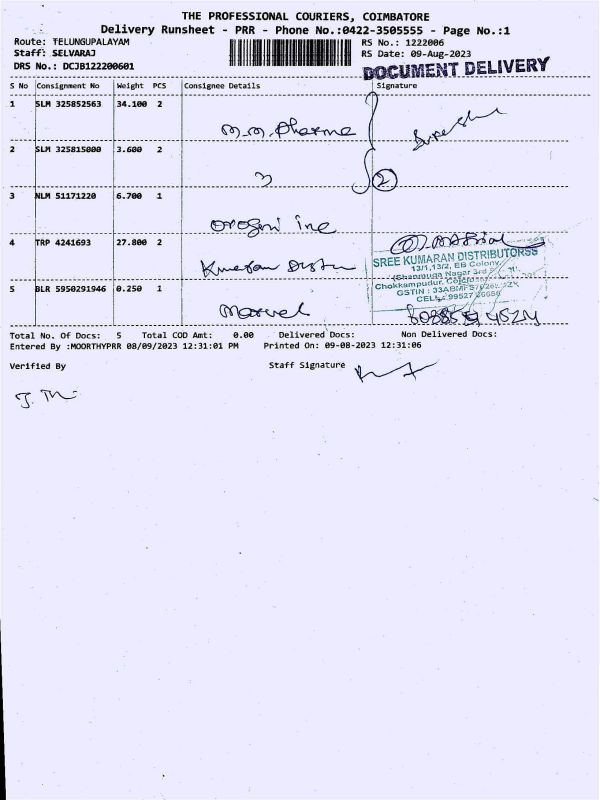 THE PROFESSIONAL COURIERS, COIMBATORE
Delivery Runsheet - PRR - Phone No.:0422-3505555 - Page No.:1
Route: TELUNGUPALAYAM RS No.: 1222006
Staff: SELVARAJ RS Date: 09-Aug-2023
DRS No.: DCJB122200601
DOCUMENT DELIVERY
S No Consignment No Weight PCS Consignee Details Signature
1 SLM 325852563 34.100 2
M.M. Pharma
2 SLM 325815000 3.600 2
2
3 NLM 51171220 6.700 1
4 TRP 4241693 27.800 2
SREE KUMARAN DISTRIBUTORSS
13/1,13/2, EB Colony,
Chokkampudur,
GSTIN : 33ABMFS
CELL: 99527
5 BLR 5950291946 0.250 1
Marvel
Total No. Of Docs: 5 Total COD Amt: 0.00 Delivered Docs: Non Delivered Docs:
Entered By :MOORTHYPRR 08/09/2023 12:31:01 PM Printed On: 09-08-2023 12:31:06
Verified By Staff Signature